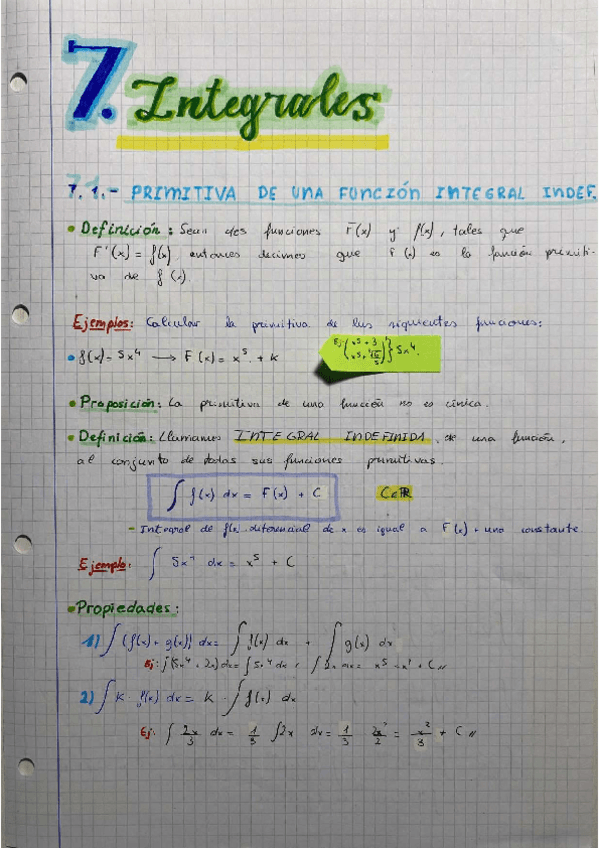 7. Integrales
7.1.- PRIMITIVA DE UNA FUNCIÓN INTEGRAL INDEF.
• Definición: Sean dos funciones F(x) y f(x), tales que
F'(x) = f(x) entonces decimos que F(x) es la función primiti-
va de f(x).
Ejemplos: Calcular la primitiva de las siguientes funciones:
• f(x) = 5x⁴ → F(x) = x⁵ + k
Ej: x⁵ + 3
} 5x⁴.
• Proposición: La primitiva de una función no es única.
• Definición: Llamamos INTEGRAL INDEFINIDA de una función,
al conjunto de todas sus funciones primitivas.
∫ f(x) dx = F(x) + C C∈ℝ
- Integral de f(x) diferencial de x es igual a F(x) + una constante.
Ejemplo: ∫ 5x⁴ dx = x⁵ + C
• Propiedades:
1) ∫ (f(x) + g(x)) dx = ∫ f(x) dx + ∫ g(x) dx
Ej: ∫(5x⁴ + 2x) dx = ∫5x⁴ dx + ∫2x dx = x⁵ + x² + C //
2) ∫ k · f(x) dx = k · ∫ f(x) dx
Ej: ∫ 2x/3 dx = 1/3 ∫2x dx = 1/3 2x²/2 = x²/3 + C //